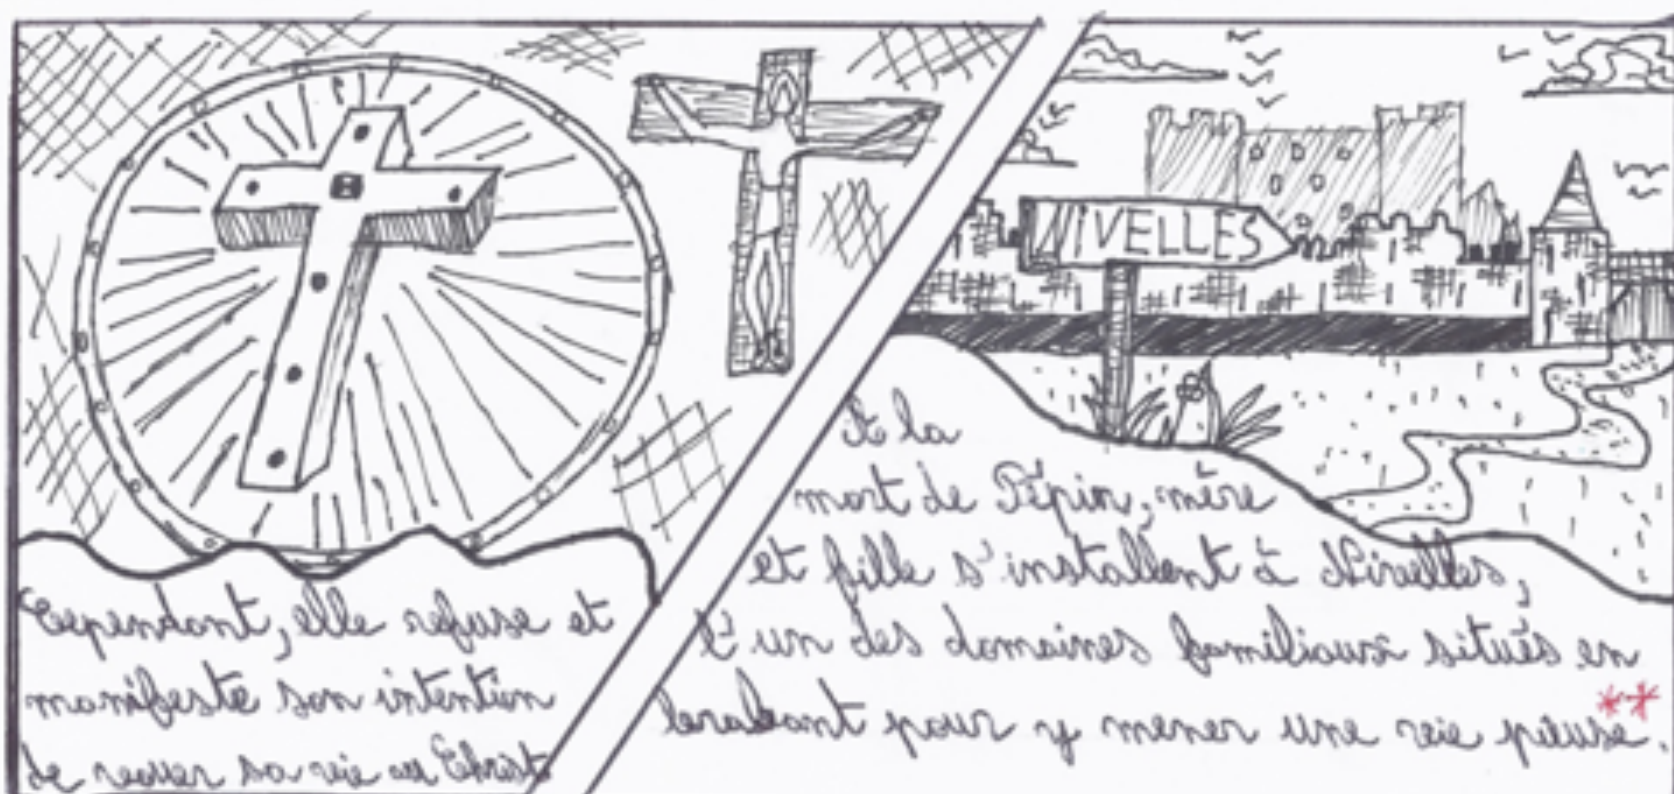 Cependant, elle refuse et
manifeste son intention
de vouer sa vie au Christ
NIVELLES
A la
mort de Pépin, mère
et fille s'installent à Nivelles,
l'un des domaines familiaux situés en
brabant pour y mener une vie pieuse **.